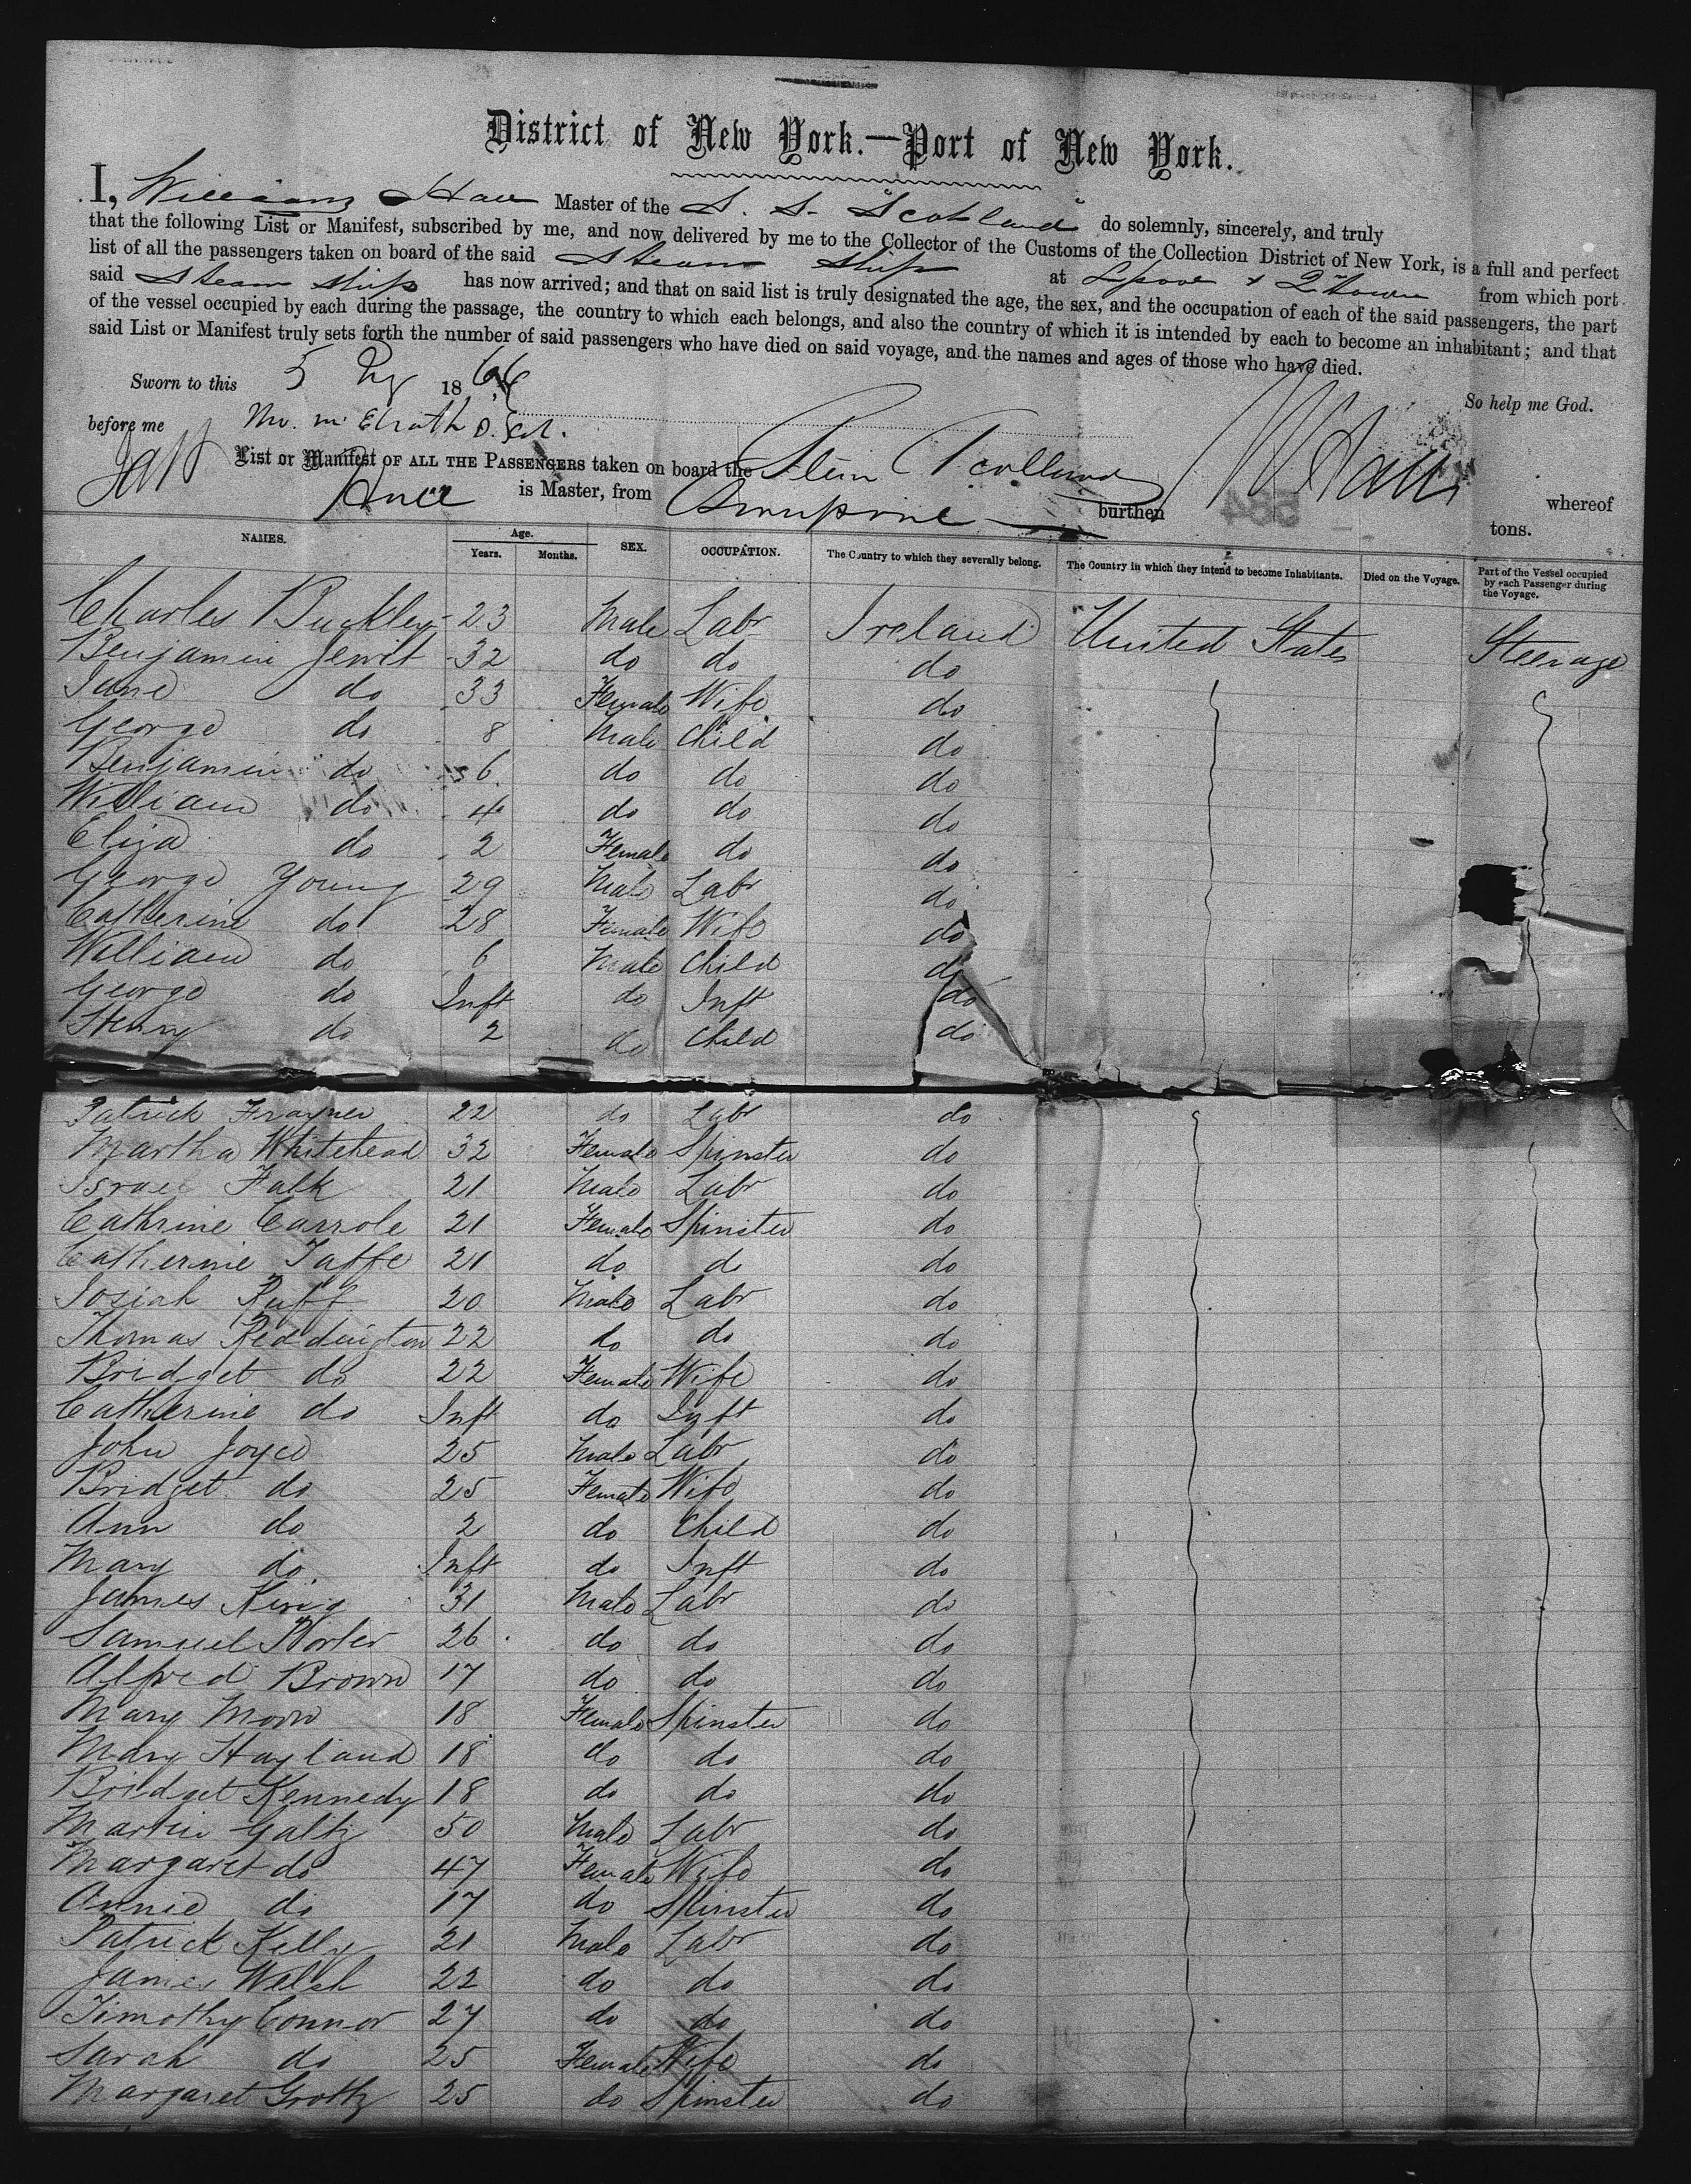 District of New York.—Port of New York.
I, William Hall Master of the S. S. "Scotland" do solemnly, sincerely, and truly
that the following List or Manifest, subscribed by me, and now delivered by me to the Collector of the Customs of the Collection District of New York, is a full and perfect
list of all the passengers taken on board of the said Steam Ship at Lpool & QTown from which port
said Steam Ship has now arrived; and that on said list is truly designated the age, the sex, and the occupation of each of the said passengers, the part
of the vessel occupied by each during the passage, the country to which each belongs, and also the country of which it is intended by each to become an inhabitant; and that
said List or Manifest truly sets forth the number of said passengers who have died on said voyage, and the names and ages of those who have died.
So help me God.
Sworn to this 5 1866
before me McElrath D. Col. W Hall
List or Manifest OF ALL THE PASSENGERS taken on board the Scotland whereof
is Master, from burthen tons.
NAMES. Age. Years. Months. SEX. OCCUPATION. The Country to which they severally belong. The Country in which they intend to become Inhabitants. Died on the Voyage. Part of the Vessel occupied by each Passenger during the Voyage.
Charles Buckley 23 Male Labr Ireland United States Steerage
Benjamin Jewit 32 do do do
Jane do 33 Female Wife do
George do 8 Male Child do
Benjamin do 6 do do do
William do 4 do do do
Eliza do 2 Female do do
George Young 29 Male Labr do
Catherine do 28 Female Wife do
William do 6 Male Child do
George do Inft do Inft do
Henry do 2 do Child do
Patrick Frayner 22 do Labr do
Martha Whitehead 32 Female Spinster do
Israel Falk 21 Male Labr do
Cathrine Carrole 21 Female Spinster do
Catherine Taffe 21 do do do
Josiah Ruff 20 Male Labr do
Thomas Reddington 22 do do do
Bridget do 22 Female Wife do
Catherine do Inft do Inft do
John Joyce 25 Male Labr do
Bridget do 25 Female Wife do
Ann do 2 do Child do
Mary do Inft do Inft do
James King 31 Male Labr do
Samuel Porter 26 do do do
Alfred Brown 17 do do do
Mary Moon 18 Female Spinster do
Mary Hayland 18 do do do
Bridget Kennedy 18 do do do
Martin Galtz 50 Male Labr do
Margaret do 47 Female Wife do
Annie do 17 do Spinster do
Patrick Kelly 21 Male Labr do
James Welsh 22 do do do
Timothy Connor 27 do do do
Sarah do 25 Female Wife do
Margaret Grottz 25 do Spinster do